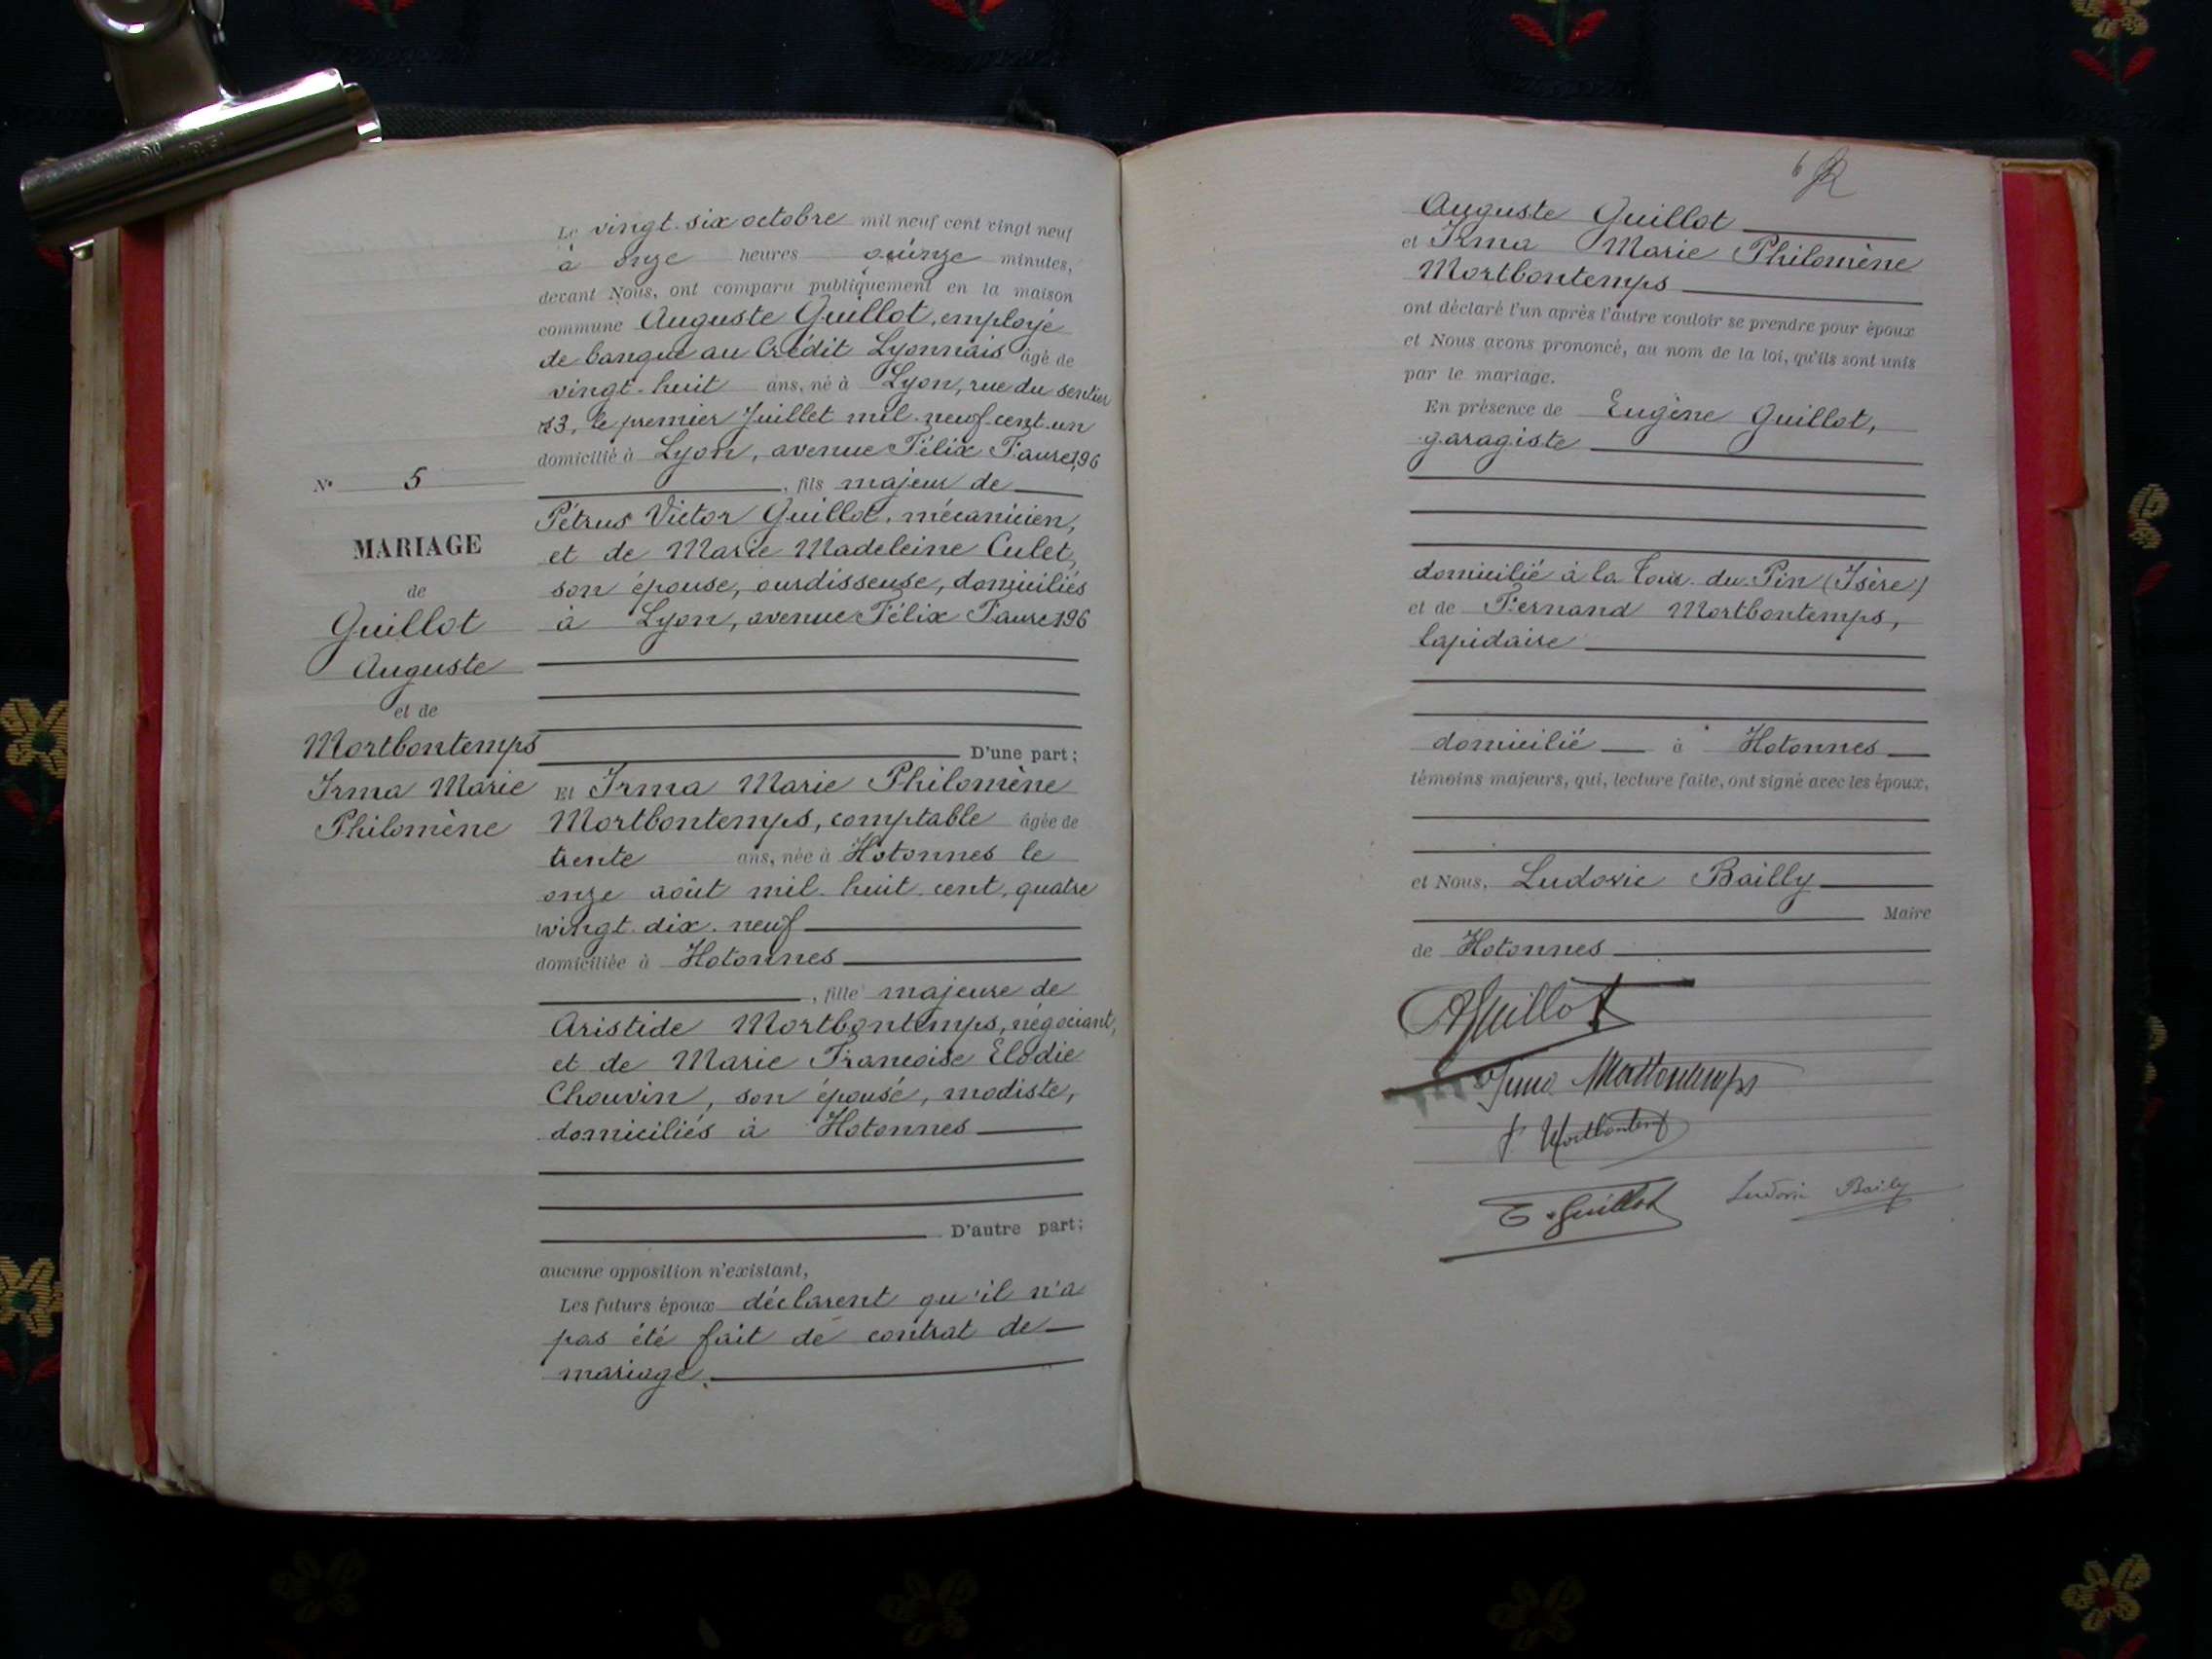 Le vingt-six octobre mil neuf cent vingt neuf
à onze heures quinze minutes,
devant Nous, ont comparu publiquement en la maison
commune Auguste Guillot, employé
de banque au Crédit Lyonnais âgé de
vingt-huit ans, né à Lyon, rue du sentier
13, le premier Juillet mil-neuf-cent-un
domicilié à Lyon, avenue Félix Faure, 196
, fils majeur de
Pétrus Victor Guillot, mécanicien,
et de Marie Madeleine Culet,
son épouse, ourdisseuse, domiciliés
à Lyon, avenue Félix Faure 196
D'une part;
Et Irma Marie Philomène
Mortbontemps, comptable âgée de
trente ans, née à Hotonnes le
onze août mil-huit-cent-quatre
vingt-dix-neuf
domiciliée à Hotonnes
, fille majeure de
Aristide Mortbontemps, négociant,
et de Marie Francoise Elodie
Chouvin, son épouse, modiste,
domiciliés à Hotonnes
D'autre part;
aucune opposition n'existant,
Les futurs époux déclarent qu'il n'a
pas été fait de contrat de
mariage.
N° 5
MARIAGE
de
Guillot
Auguste
et de
Mortbontemps
Irma Marie
Philomène
6
Auguste Guillot
et Irma Marie Philomène
Mortbontemps
ont déclaré l'un après l'autre vouloir se prendre pour époux
et Nous avons prononcé, au nom de la loi, qu'ils sont unis
par le mariage.
En présence de Eugène Guillot,
garagiste
domicilié à la Tour-du-Pin (Isère)
et de Fernand Mortbontemps,
lapidaire
domicilié à Hotonnes
témoins majeurs, qui, lecture faite, ont signé avec les époux,
et Nous, Ludovic Bailly
Maire
de Hotonnes
AGuillot
Irma Mortbontemps
F Mortbontemps
E. Guillot
Ludovic Bailly